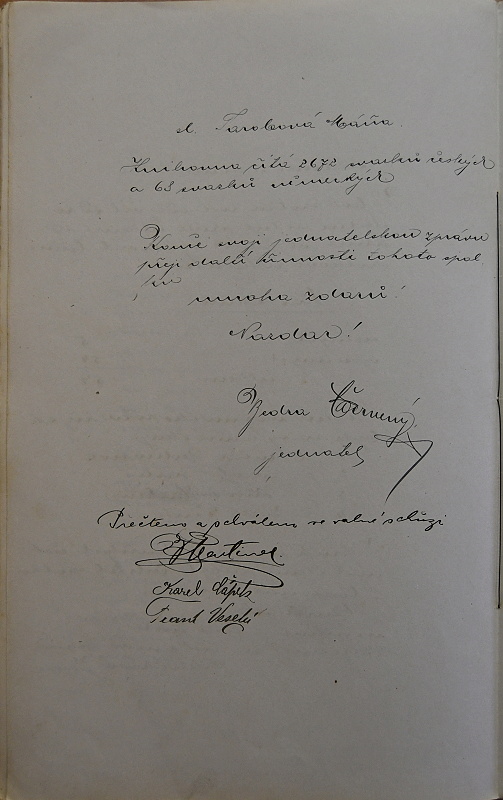 sl. Tarabová Máňa.
Knihovna čítá 2672 svazků českých
a 63 svazků německých
Konče svoji jednatelskou zprávu
přeji další činnosti tohoto spol-
ku
mnoha zdarů!
Nazdar!
Jedra Červený,
jednatel
Přečteno a schváleno ve valné schůzi
Martinec.
Karel Čápek
Frant Veselý